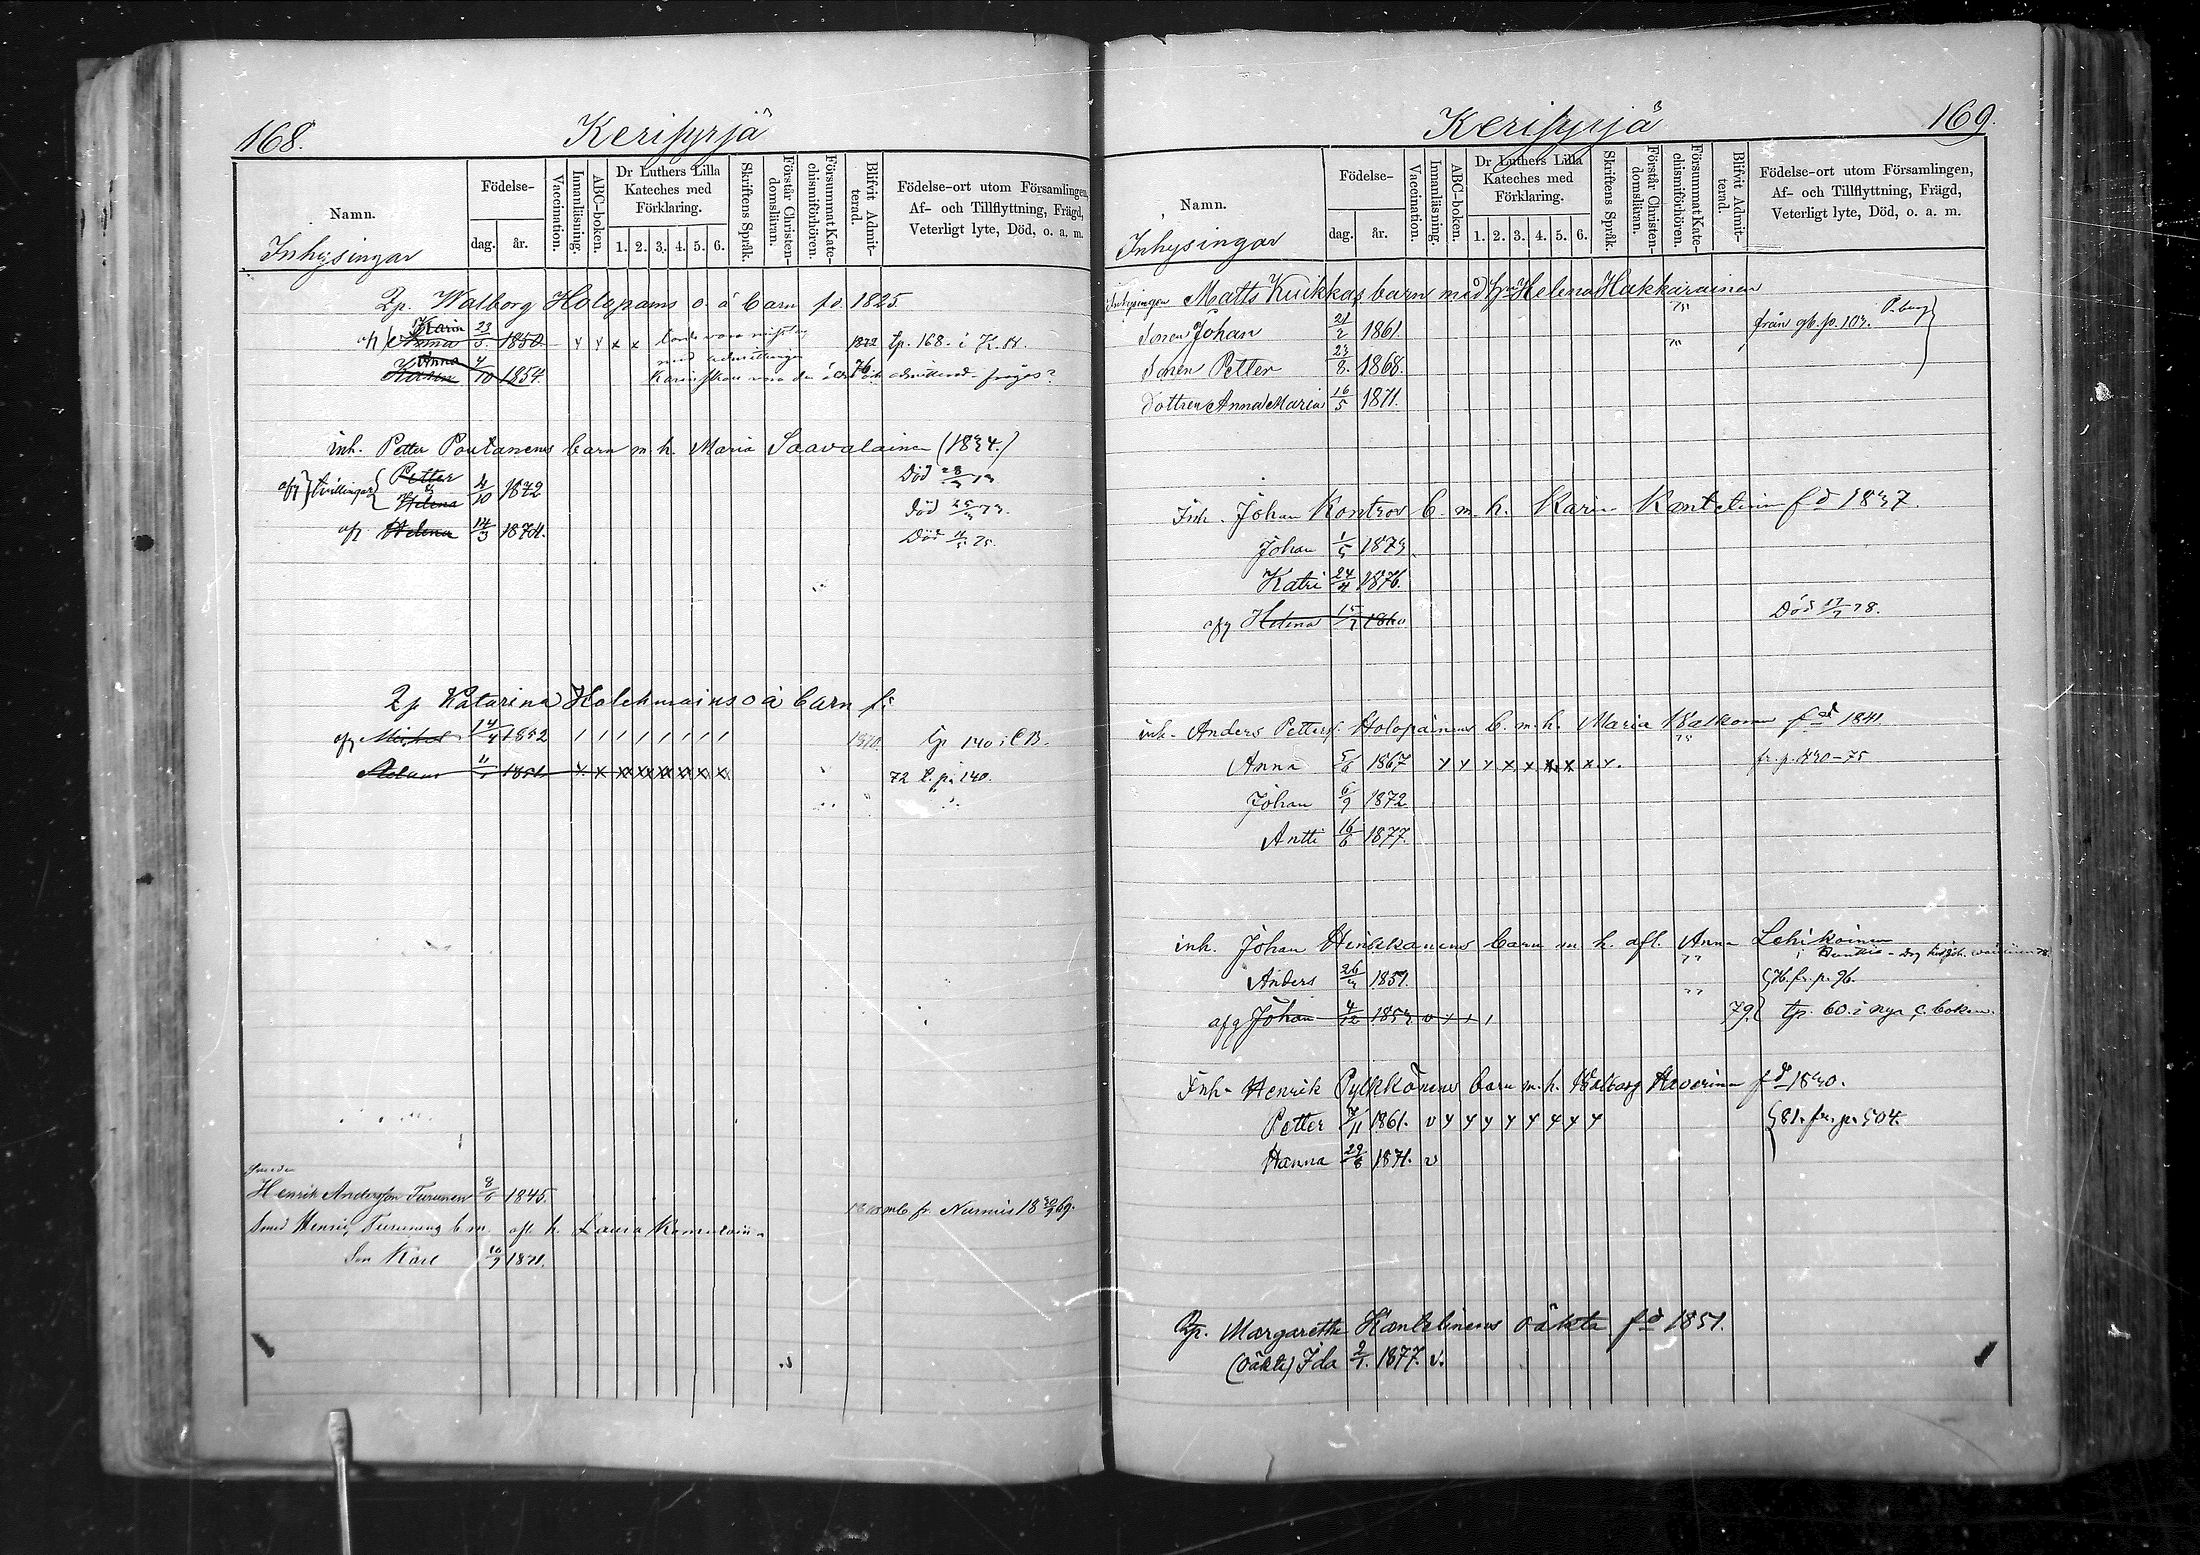 168.
Kerisyrjä
Namn.
Födelse-
dag.
år.
Vaccination.
Innanläsning.
ABC-boken.
Dr Luthers Lilla Kateches med Förklaring.
1. 2. 3. 4. 5. 6.
Skriftens Språk.
Förstår Christendomsläran.
Försummat Katechismiförhören.
Blifvit Admitterad.
Födelse-ort utom Församlingen,
Af- och Tillflyttning, Frägd,
Veterligt lyte, Död, o. a. m.
Inhysingar
Qp. Walborg Holopains o. ä barn f. 1825
Karin
Anna 23/5 1850 1872 tp. 168. i K.B.
Anna
Karin 4/10 1854
inh. Petter Poutanens barn m. h. Maria Saavalainen (1834.)
afg tvillingar Petter Död 28/3 73
& 4/10 1872
Helena död 25/3 73.
afg. Helena 14/3 1874. Död 4/5 75.
Qp Katarina Holekmains o ä barn
afg Michel 14/4 1852 / / / / / / / / 1870. tp 140 i C.B.
1851 x x x x x x x x 72 t. p. 140.
Smeden
Henrik Andersson Turunen 8/6 1845. mb fr. Nurmis 18 30/9 69.
Smed Henric Turunens b m. afl. h. Laura
Son Karl 10/9 1871.
169.
Kerisyrjä
Namn.
Födelse-
dag.
år.
Vaccination.
Innanläsning.
ABC-boken.
Dr Luthers Lilla Kateches med Förklaring.
1. 2. 3. 4. 5. 6.
Skriftens Språk.
Förstår Christendomsläran.
Försummat Katechismiförhören.
Blifvit Admitterad.
Födelse-ort utom Församlingen,
Af- och Tillflyttning, Frägd,
Veterligt lyte, Död, o. a. m.
Inhysingar
Inhysingen Matts Kuikkas barn med h:u Helena Hakkarainen
Sonen Johan 21/2 1861. från gb. p. 103.
Sonen Petter 23/8 1868.
Dottren Anna Maria 16/5 1871.
Inh. Johan Kontros b. m. h. Karin Kantelinen fd 1837.
Johan 1/5 1873.
Katri 24/4 1876.
afg Helena Död 17/7 78.
inh. Anders Petters. Holopainens b. m. h. Maria Walkonen fd 1841.
Anna 5/6 1867 fr. p. 430-75
Johan 6/9 1872
Antti 16/6 1877.
inh. Johan Hirskanens barn m h. afl. Anna Lehikoinen
Anders 26/3 1851. 76. fr. p. 96.
afg Johan 4/12 1853 79 tp. 60. i nya C. boken.
Inh. Henrik Pylkkönens barn m. h. Walborg Haverinen fd 1830.
Petter 4/11 1861. v y y y y y y y y 81. fr. p. 504.
Hanna 29/8 1871. v
Qp. Margaretha Kantelinens oäkta fd 1851.
(oäkta) Ida 2/1. 1877. v.